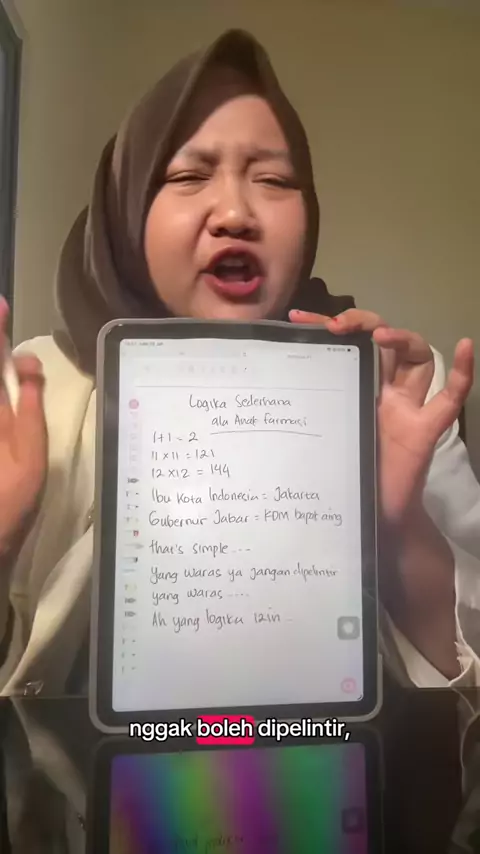 Logika Sederhana
ala Anak Farmasi
1+1 = 2
11 x 11 = 121
12 x 12 = 144
Ibu Kota Indonesia = Jakarta
Gubernur Jabar = KDM bapat aing
that's simple ....
Yang waras ya jangan dipelintir
yang waras ....
Ah yang logika izin ..
nggak boleh dipelintir,